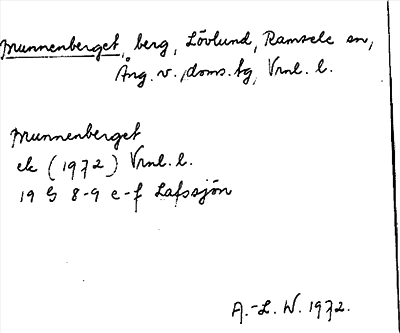 Munnenberget, berg, Lövlund, Ramsele sn,
Ång. v., doms. tg, Vrnl. l.
Munnenberget
ek (1972) Vrnl. l.
19 G 8-9 e-f Lafssjön
A.-L. W. 1972.